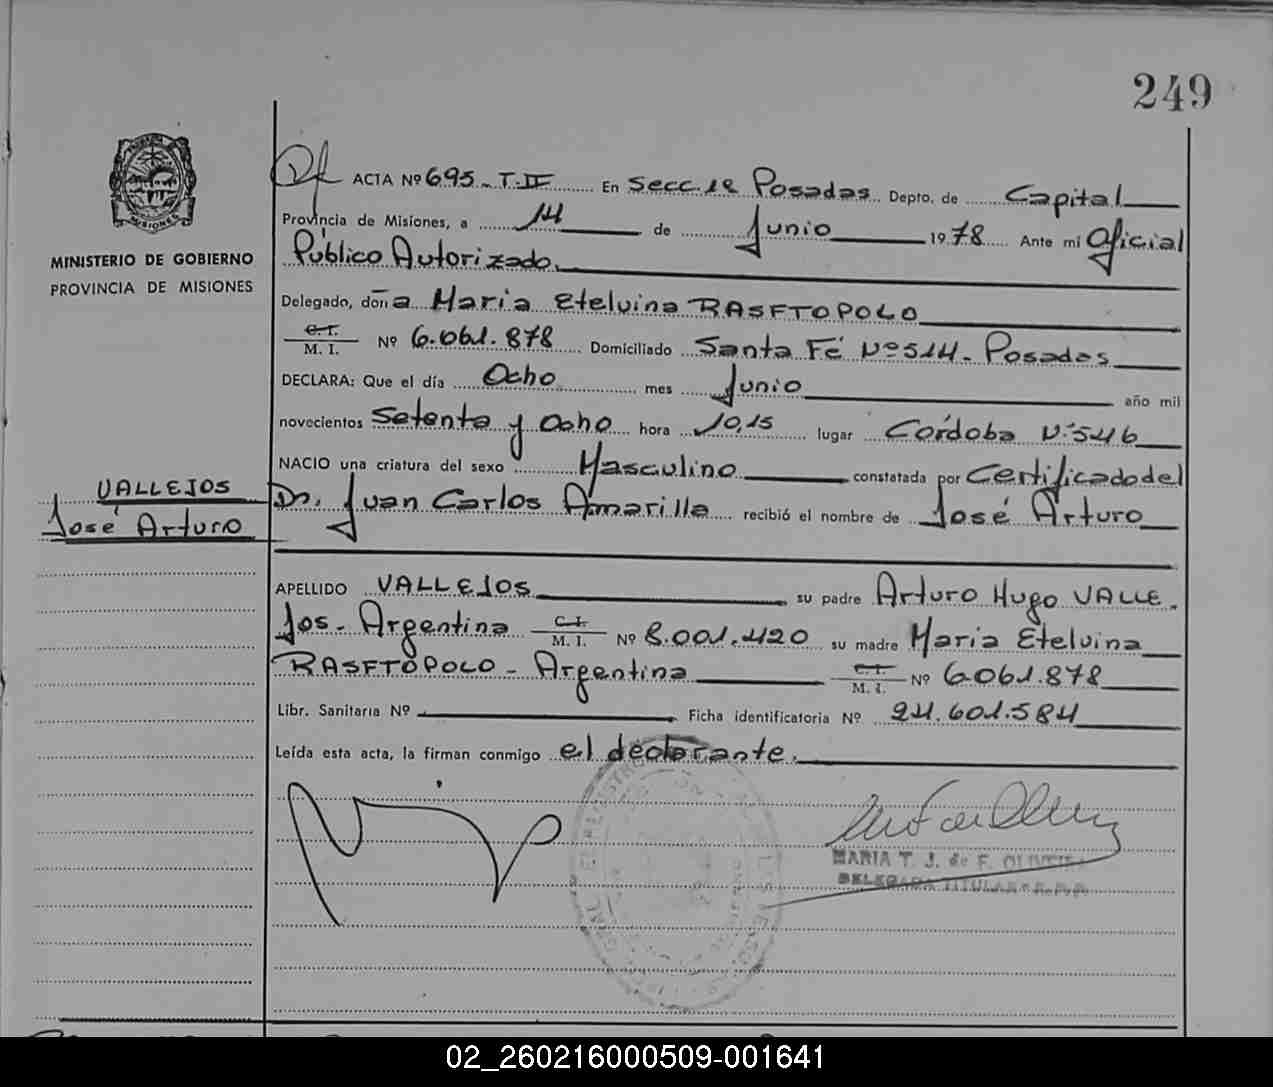 249
ACTA Nº 695 - T. II En Secc. 1ª Posadas Depto. de Capital
Provincia de Misiones, a 14 de Junio 1978 Ante mi Oficial
Público Autorizado.
MINISTERIO DE GOBIERNO
PROVINCIA DE MISIONES
MISIONES
Delegado, doña Maria Etelvina RASFTOPOLO
C. I.
M. I. Nº 6.061.878 Domiciliado Santa Fé Nº 514 - Posadas
DECLARA: Que el día Ocho mes Junio año mil
novecientos Setenta y Ocho hora 10,15 lugar Córdoba Nº 546
NACIO una criatura del sexo Masculino constatada por Certificado del
VALLEJOS
José Arturo
Dr. Juan Carlos Amarilla recibió el nombre de José Arturo
APELLIDO VALLEJOS su padre Arturo Hugo VALLE-
Jos - Argentina C. I. M. I. Nº 8.001.420 su madre Maria Etelvina
RASFTOPOLO - Argentina C. I. M. I. Nº 6.061.878
Libr. Sanitaria Nº Ficha identificatoria Nº 24.601.584
Leída esta acta, la firman conmigo el declarante.
MARIA T. J. de F. OLIVEIRA
DELEGADA TITULAR
02_260216000509-001641